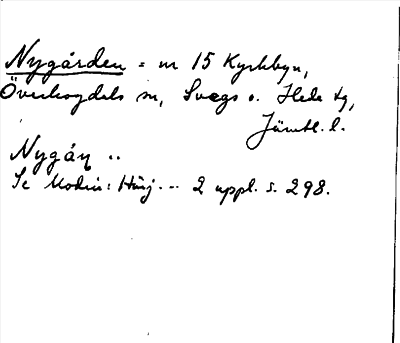 Nygården = nr 15 Kyrkbyn,
Överhogdals sn, Svegs o. Hede tg,
Jämtl. l.
Nygån ..
Se Modin: Härj. .. 2 uppl. s. 298.